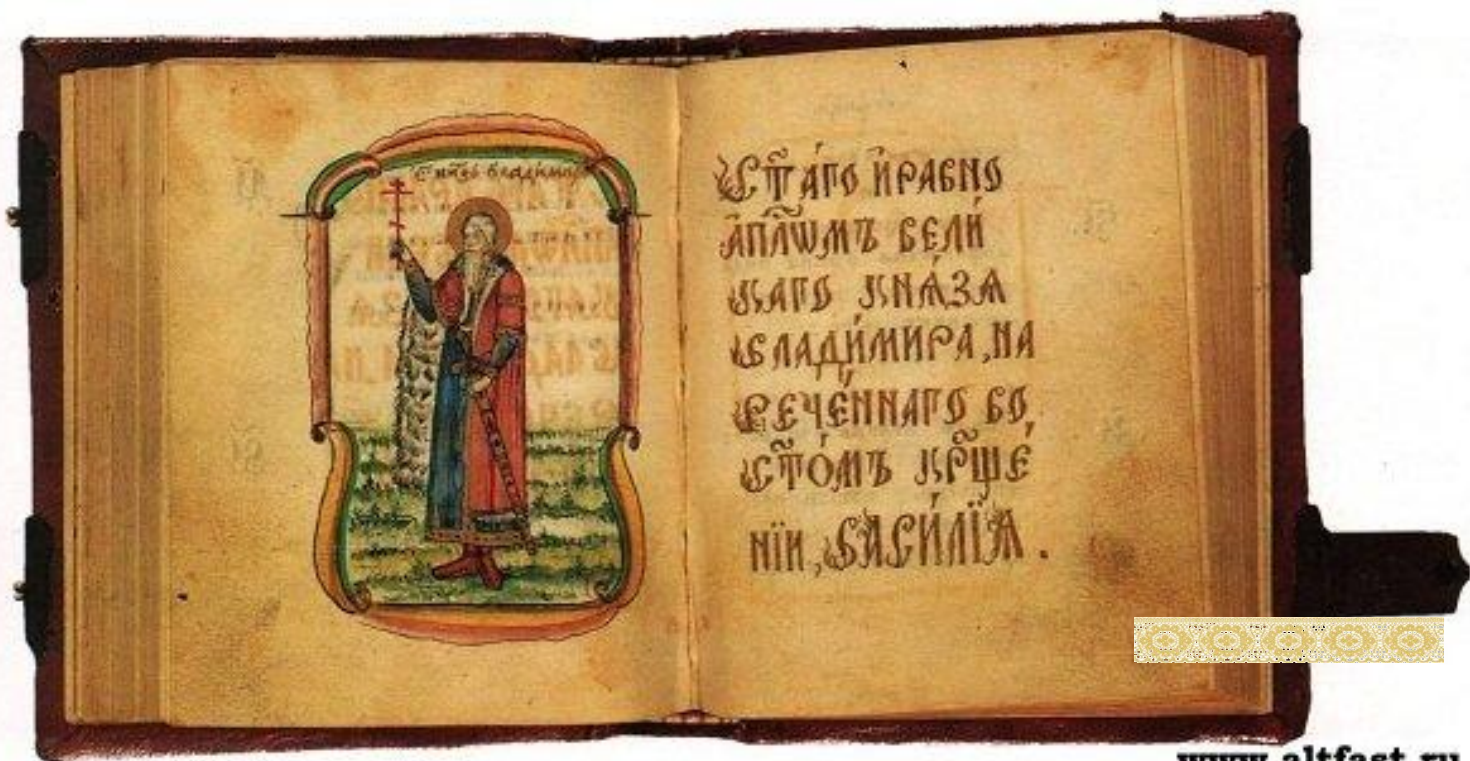 С кнѧзь владимиръ
Ст҃а́гѡ и҆ равно
а҆пⷭ҇лѡмъ вели́
каго кнѧ́зѧ
влади́мира, на
рече́ннаго во
ст҃о́мъ кр҃ще́
нїи, васи́лїѧ.
www.altfast.ru